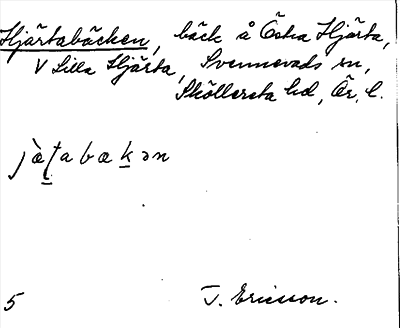 Hjärtabäcken, bäck å Östra Hjärta,
V Lilla Hjärta, Svennevads sn,
Sköllersta hd, Ör. l.
jæ̀ʈabækən
5 T. Ericsson.